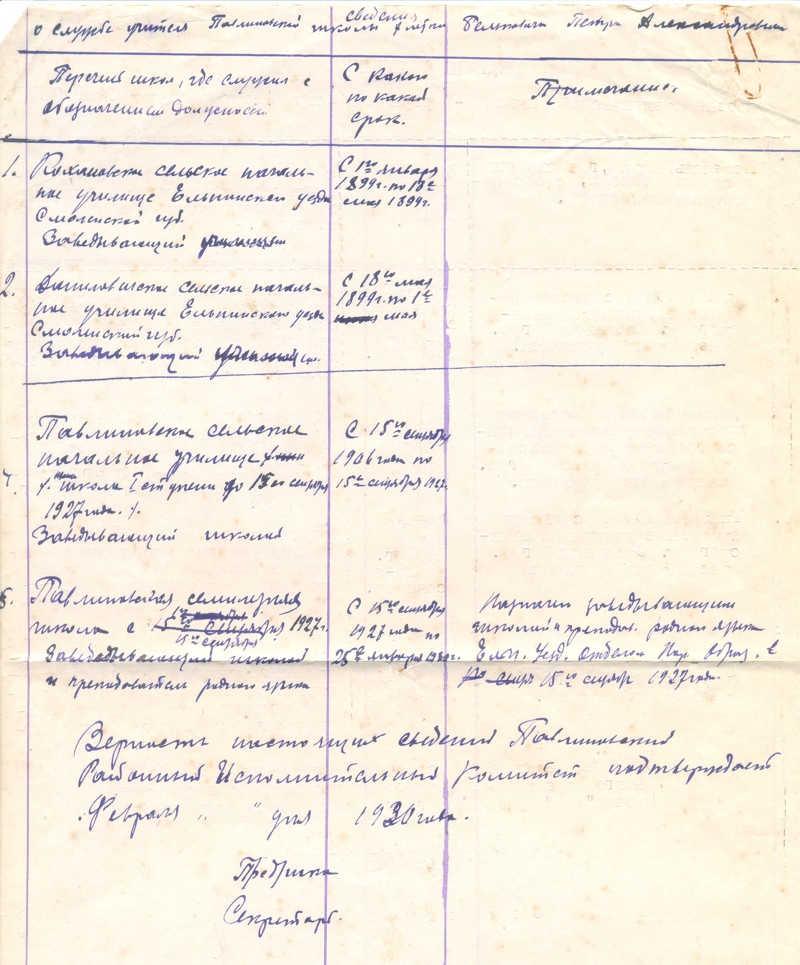 сведения
о службе учителя Павлиновской школы 7 летки Петра Александровича
Перечень школ, где служил с
обозначением должности
С какого
по какой
срок.
Примечание.
1. Кохановское сельское началь-
ное училище Ельнинского уезда
Смоленской губ.
Заведывающий училищем
С 1го января
1899г. по 18е
мая 1899г.
2. Даниловичское сельское началь-
ное училище Ельнинского уезда
Смоленской губ.
Заведывающий училищем.
С 18го мая
1899г. по 1е
мая
Павлиновское сельское
начальное училище
школа I ступени до 15го сентября
1927 года
Заведывающий школой
С 15го сентября
1906 года по
15е сентября 1927г.
5. Павлиновская семилетняя
школа с 15го сентября 1927г.
15го сентября
Заведывающий школой
и преподаватель родного языка
С 15го сентября
1927 года по
25е января 1930г.
Назначен заведывающим
школой и преподав. родного языка
Ельн. Уезд. Отделом Нар. Образ. с
15го сентября 1927 года.
Верность настоящих сведений Павлиновский
Районный Исполнительный Комитет подтверждает
Февраля " " дня 1930 года.
Предрика
Секретарь.